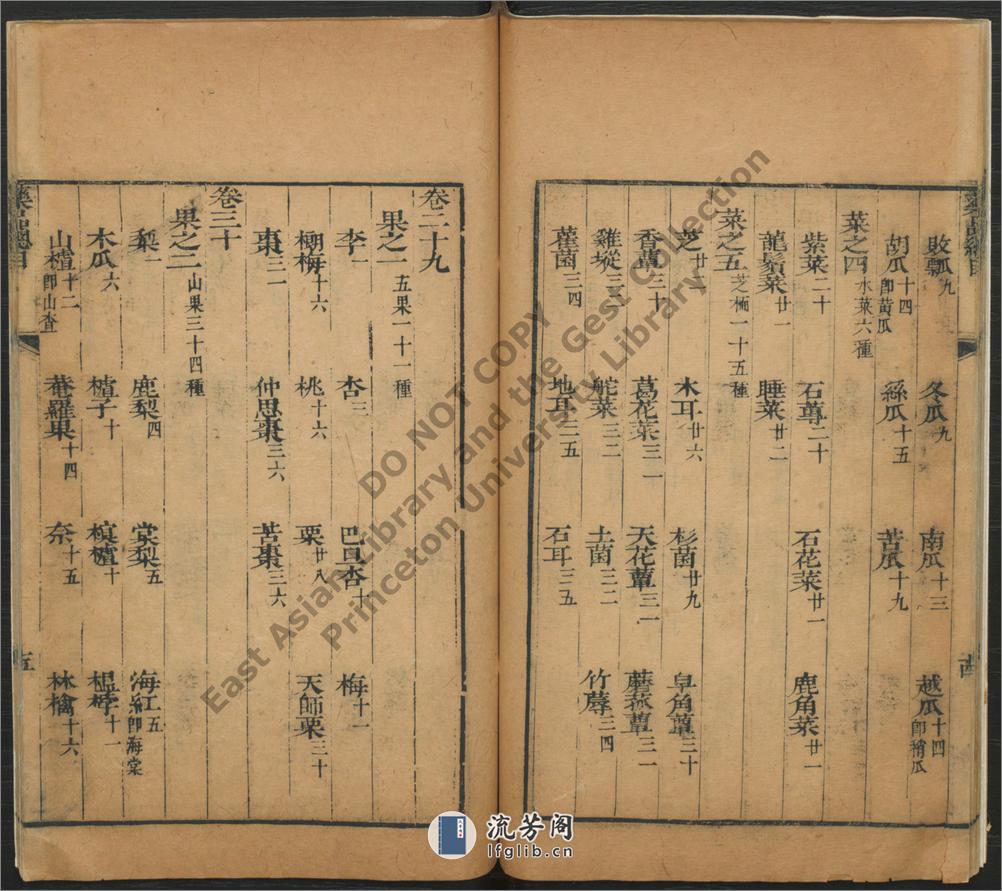 敗瓢九 冬瓜九 南瓜十三 越瓜十四即稍瓜
胡瓜十四即黄瓜 絲瓜十五 苦瓜十九
菜之四水菜六種
紫菜二十 石蓴二十 石花菜廿一 鹿角菜廿一
龍鬚菜廿一 睡菜廿二
菜之五芝栭一十五種
芝廿二 木耳廿六 杉菌廿九 皁角蕈三十
香蕈三十 葛花菜三一 天花蕈三一 蘑菰蕈三一
雞㙡三二 舵菜三二 土菌三二 竹蓐三四
雚菌三四 地耳三五 石耳三五
卷二十九
果之一五果一十一種
李一 杏三 巴旦杏十 梅十一
榔梅十六 桃十六 栗廿八 天師栗三十
棗三一 仲思棗三六 苦棗三六
卷三十
果之二山果三十四種
梨一 鹿梨四 棠梨五 海紅五即海棠
木瓜六 樝子十 榠樝十 榲桲十一
山樝十二即山査 菴羅果十四 柰十五 林檎十六
藥品總目
五
DO NOT COPY
East Asian Library and the Gest Collection
Princeton University Library
流芳阁
lfglib.cn